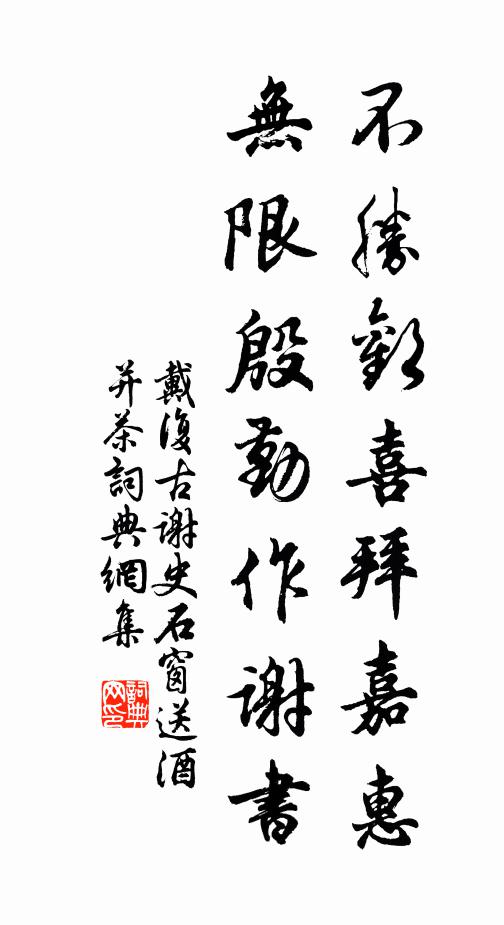 不勝歡喜拜嘉惠
無限殷勤作謝書
戴復古謝史石窗送酒
并茶詞典網集
詞典网印